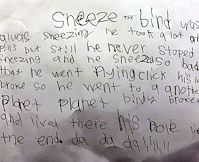 Sneeze the bird was
alwas sneezing he took a lot of
pils but still he never stoped
sneezing and he sneezd so bad
that he went flying click his
broke so he went to a nother
planet planet birdy broke
and lived there his hole
the end. da da da!!!!